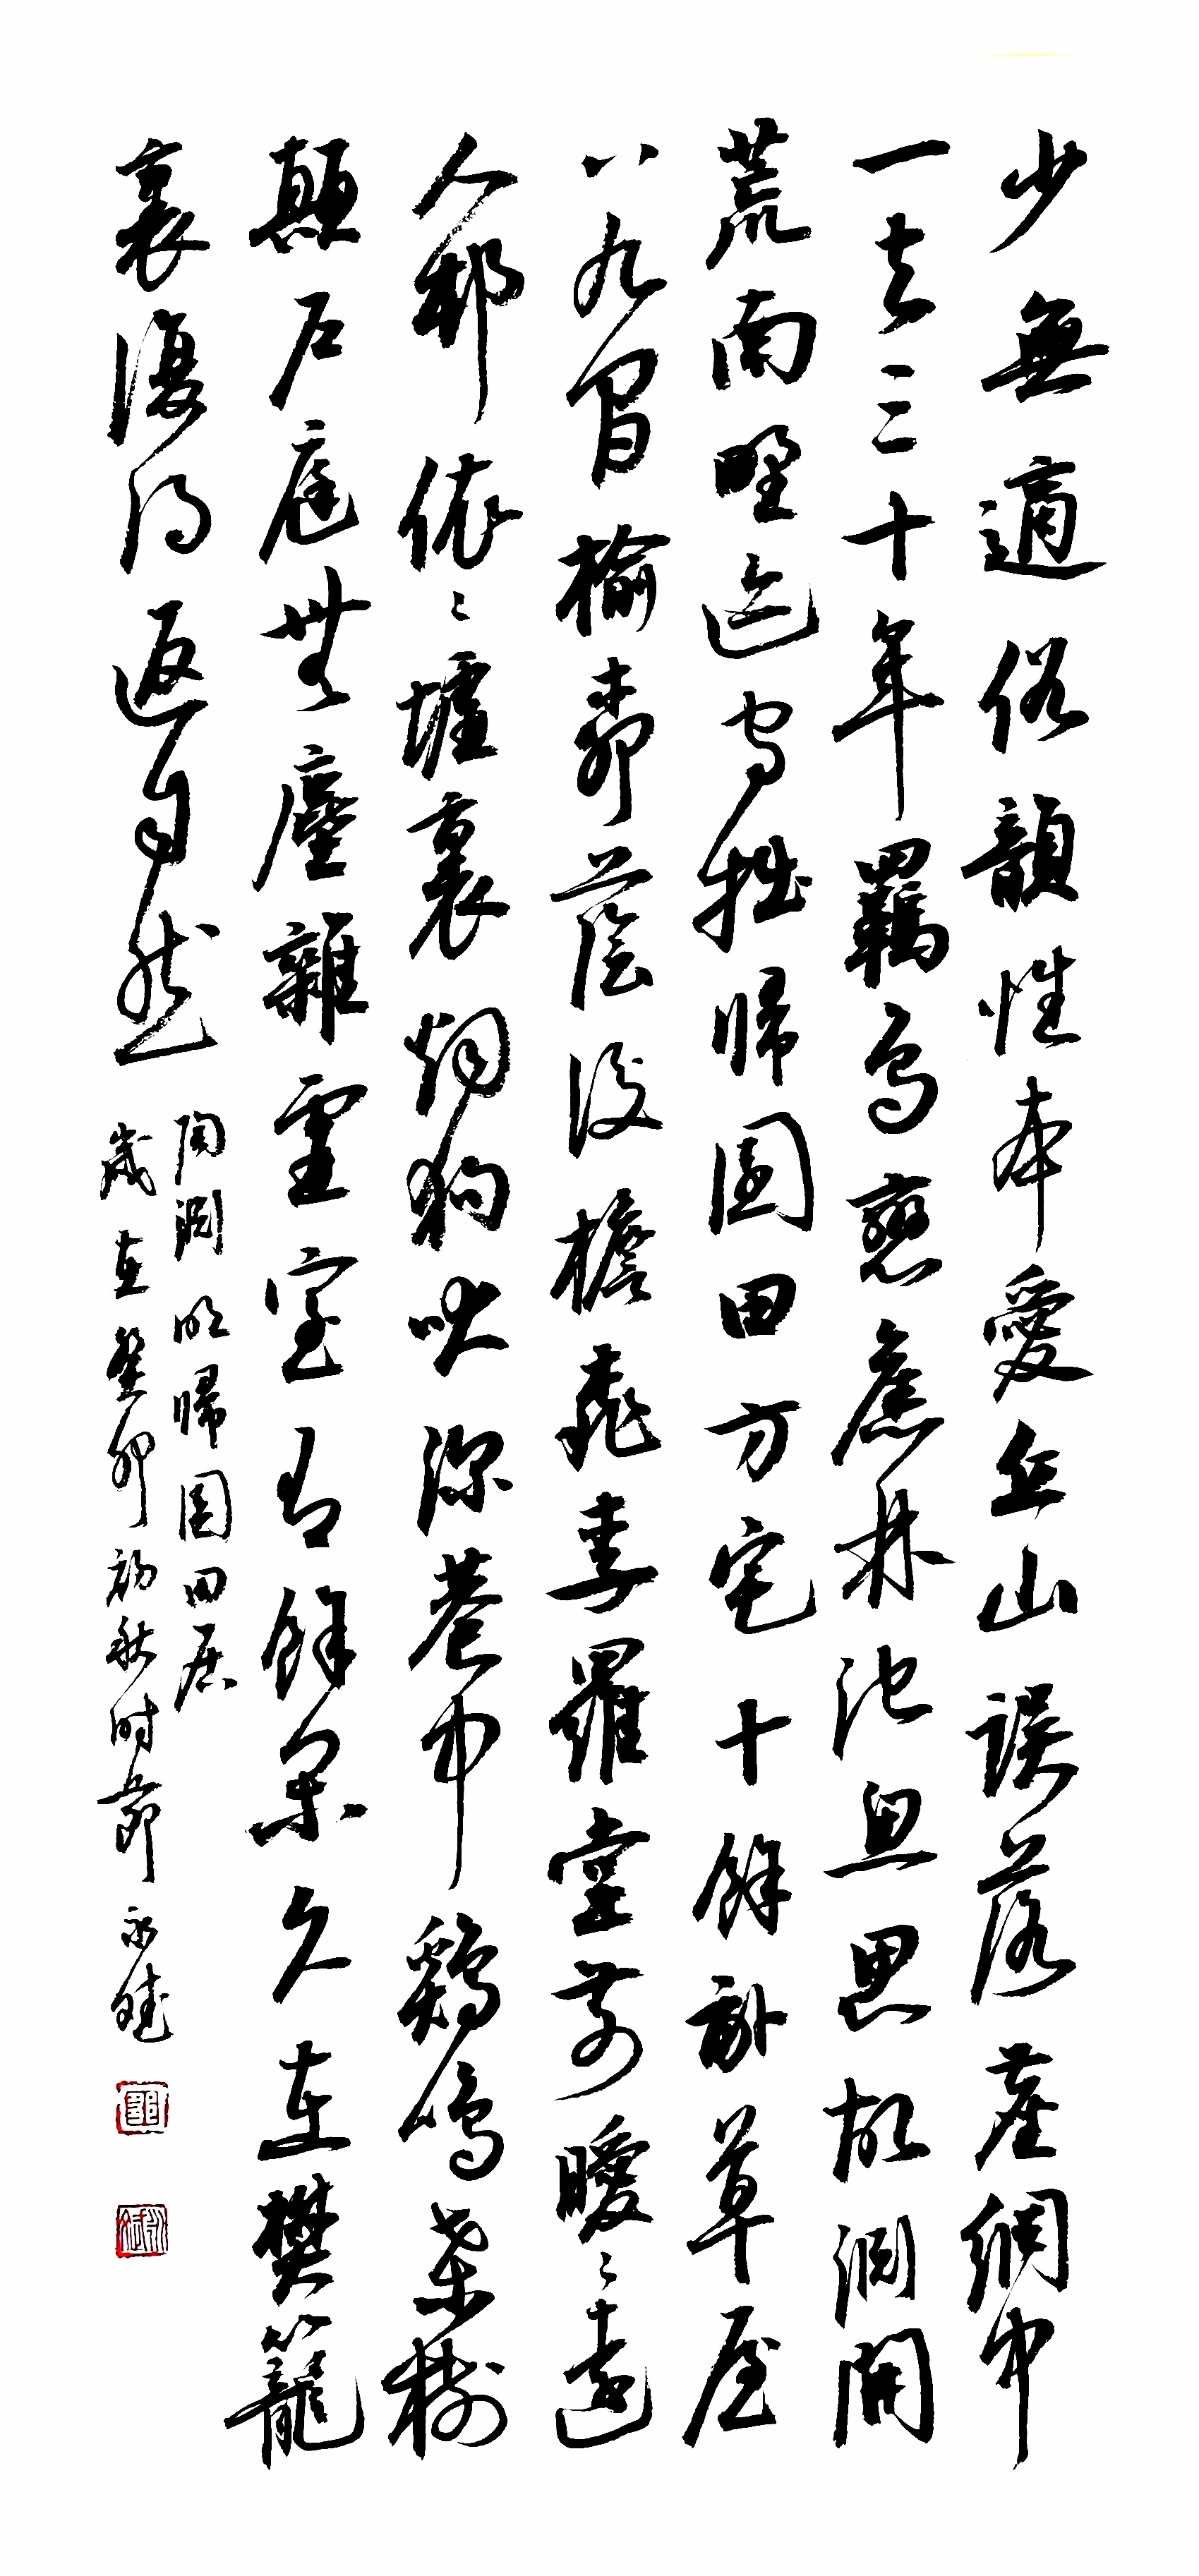 少無適俗韻性本愛丘山誤落塵網中
一去三十年羈鳥戀舊林池魚思故淵開
荒南野迄守拙歸園田方宅十餘畝草屋
八九間榆柳蔭後檐桃李羅堂前曖〻遠
人邨依〻墟裏煙狗吠深巷中鷄鳴桑樹
顛戶庭無塵雜虛室有餘閑久在樊籠
裏復得返自然
陶淵明歸園田居
歲在癸卯初秋时節